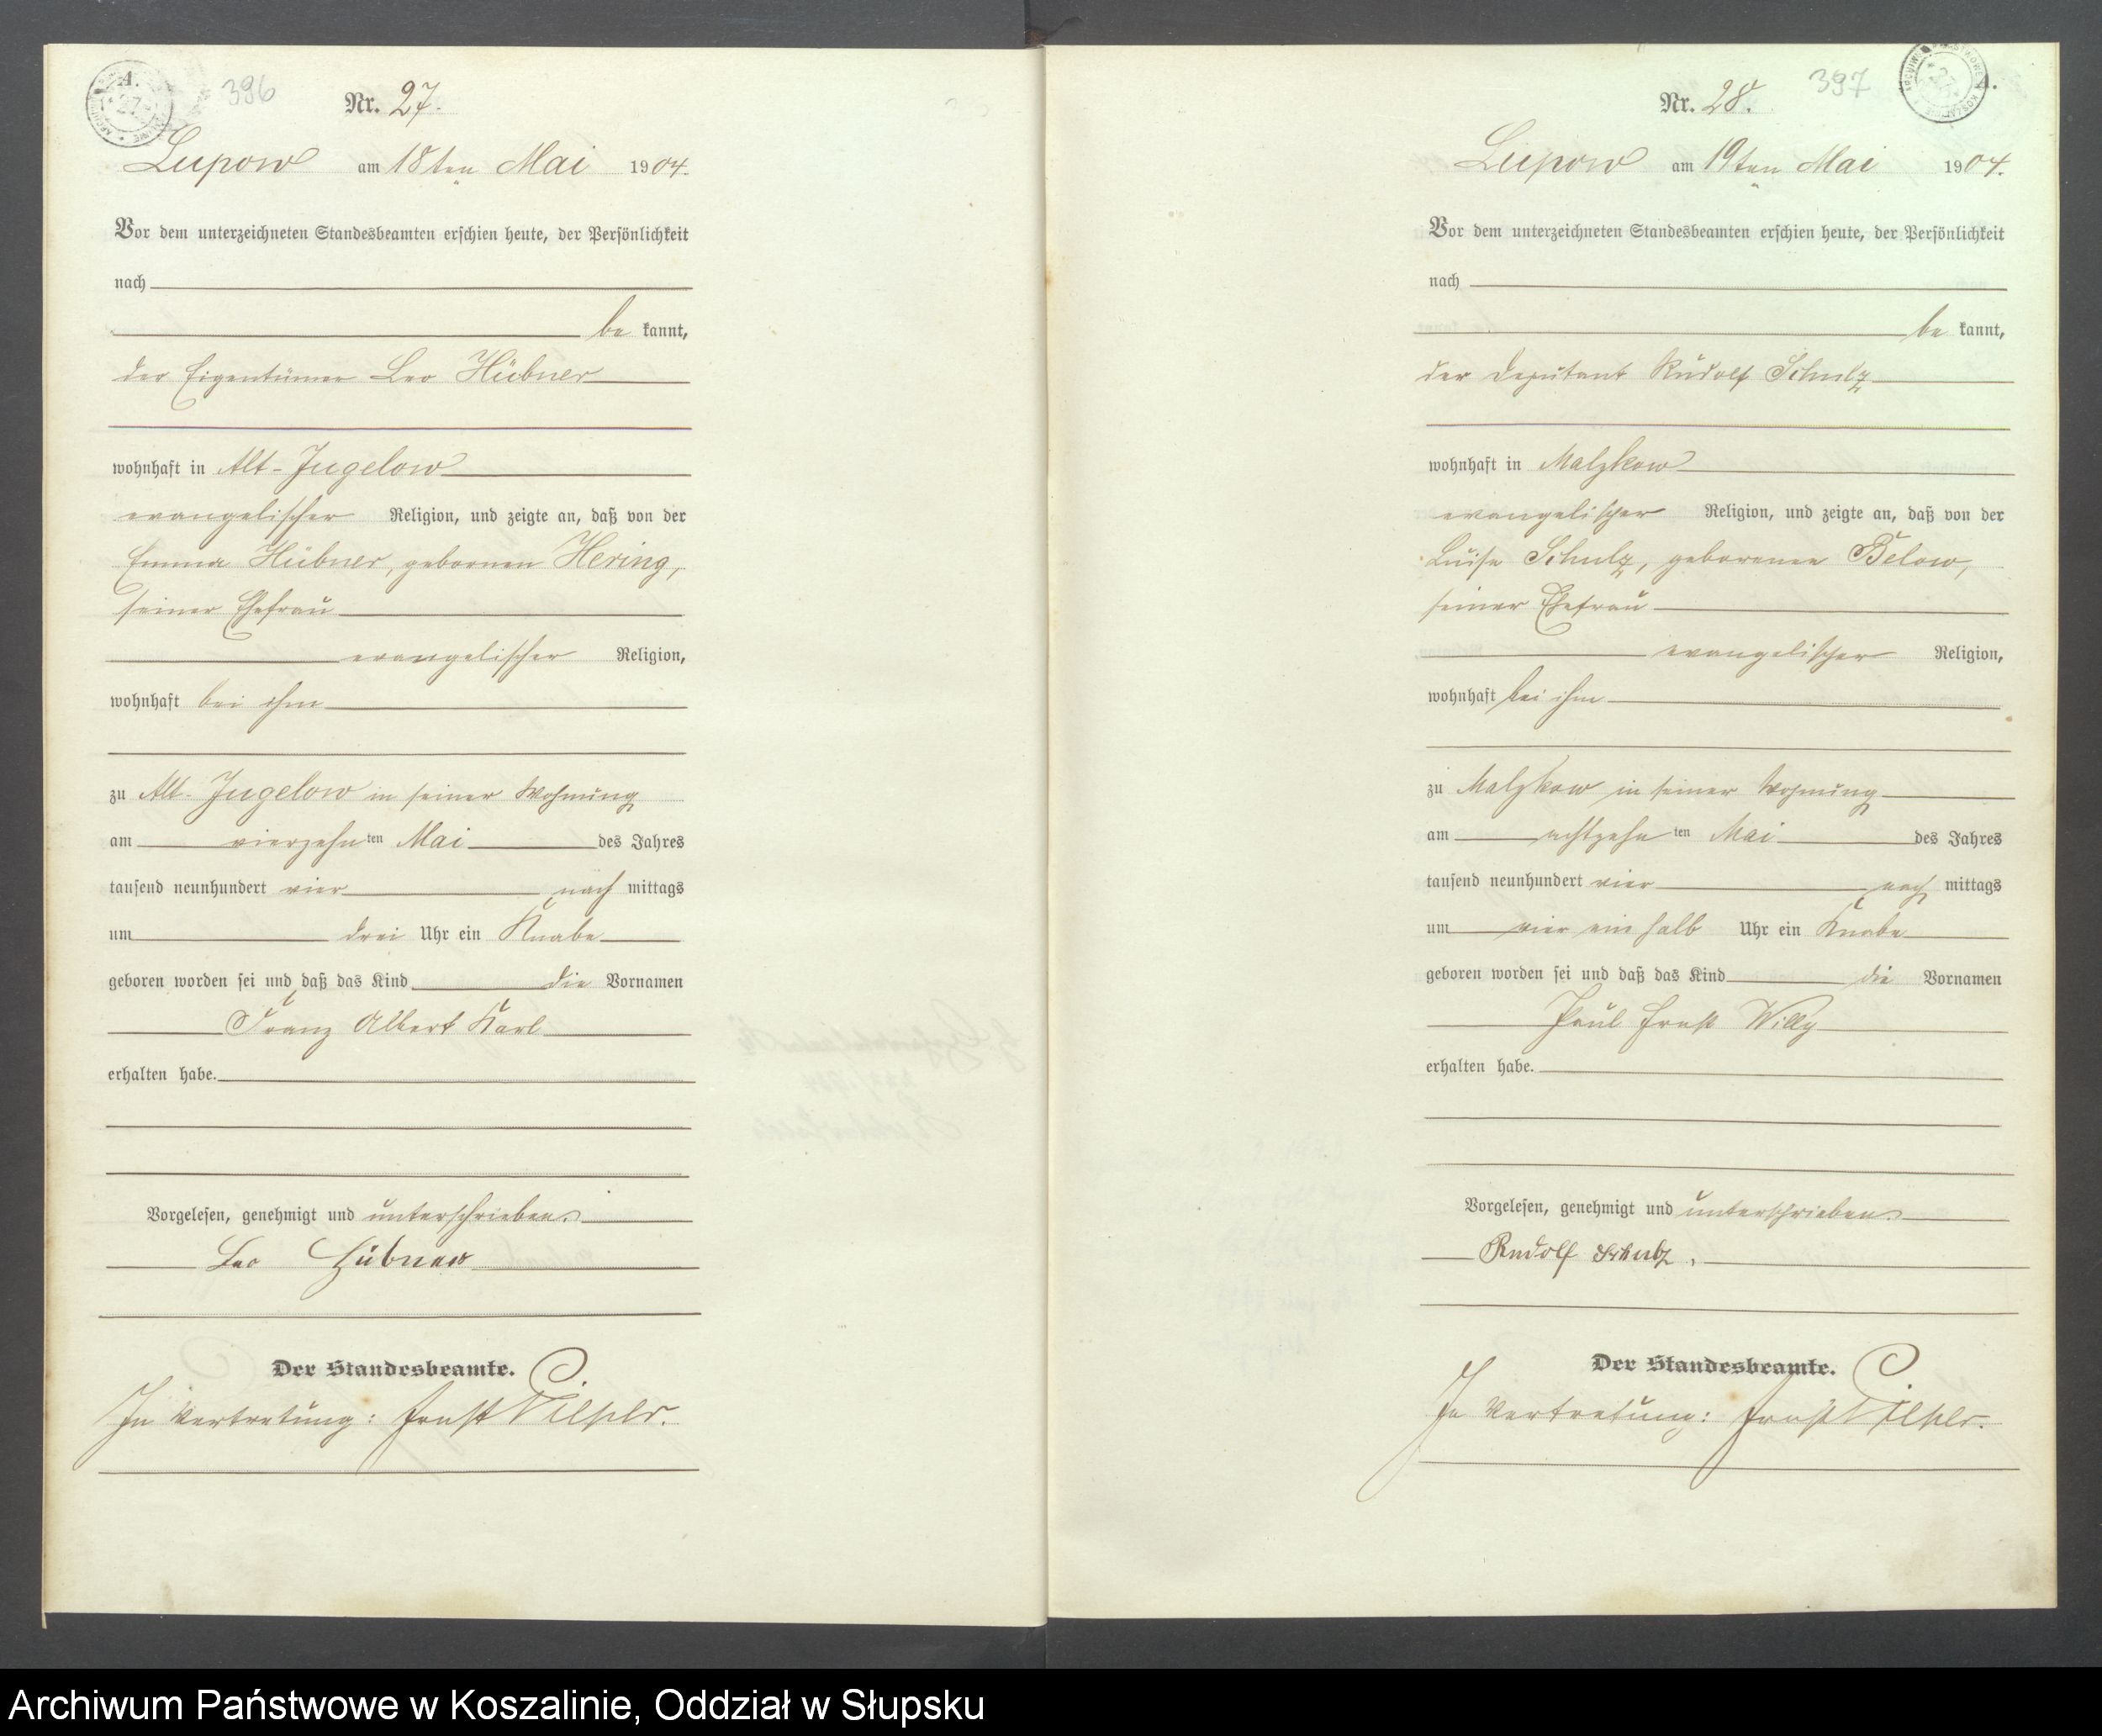 A.
396
Nr. 27.
Lupow am 18ten Mai 1904.
Vor dem unterzeichneten Standesbeamten erschien heute, der Persönlichkeit
nach
be kannt,
der Eigentümer Leo Hübner
wohnhaft in Alt-Jugelow
evangelischer Religion, und zeigte an, daß von der
Emma Hübner, gebornen Hering,
seiner Ehefrau
evangelischer Religion,
wohnhaft bei ihm
zu Alt-Jugelow in seiner Wohnung
am vierzehn ten Mai des Jahres
tausend neunhundert vier nach mittags
um drei Uhr ein Knabe
geboren worden sei und daß das Kind die Vornamen
Franz Albert Karl
erhalten habe.
Vorgelesen, genehmigt und unterschrieben.
Leo Hübner
Der Standesbeamte.
In Vertretung: Ernst
397
Nr. 28.
Lupow am 19ten Mai 1904.
Vor dem unterzeichneten Standesbeamten erschien heute, der Persönlichkeit
nach
be kannt,
der Deputant Rudolf Schulz
wohnhaft in Malzkow
evangelischer Religion, und zeigte an, daß von der
Luise Schulz, geborenen Below,
seiner Ehefrau
evangelischer Religion,
wohnhaft bei ihm
zu Malzkow in seiner Wohnung
am achtzehn ten Mai des Jahres
tausend neunhundert vier nach mittags
um vier ein halb Uhr ein Knabe
geboren worden sei und daß das Kind die Vornamen
Paul Ernst Willy
erhalten habe.
Vorgelesen, genehmigt und unterschrieben.
Rudolf Schulz.
Der Standesbeamte.
In Vertretung: Ernst
Archiwum Państwowe w Koszalinie, Oddział w Słupsku